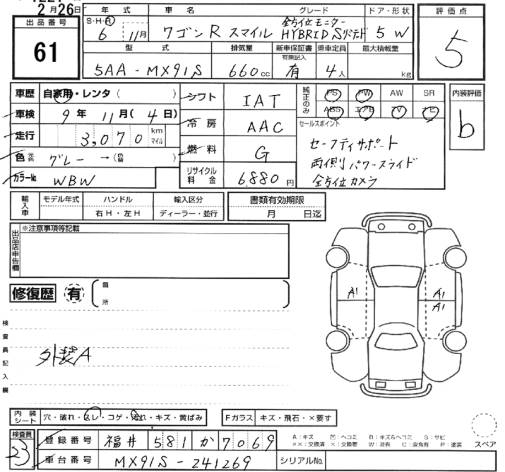 2月26日
出品番号
61
年式 車名 グレード ドア・形状
S・H・R 6 11月 ワゴンR スマイル 全方位モニター HYBRID Sリミテド 5W
型式 排気量 新車保証書 乗車定員 最大積載量
有無記入
5AA-MX91S 660cc 有 4人 kg
評価点
5
車歴 自家用・レンタ( )
車検 9年11月(4日)
走行 3,070 km マイル
色 グレー →(
カラーNo WBW
シフト IAT
冷房 AAC
燃料 G
リサイクル料金 6880円
純正のみ PS PW AW SR
ABS エアB TV ナビ
セールスポイント
セーフティサポート
両側パワースライド
全方位カメラ
内装評価
b
輸入車 モデル年式 ハンドル 輸入区分
右H・左H ディーラー・並行
書類有効期限
月 日迄
出品店申告欄
※注意事項等記載
修復歴 有 箇所
検査員記入欄
外装A
A1 A1
A1
内装シート 穴・破れ・スレ・コゲ・汚れ・キズ・黄ばみ
Fガラス キズ・飛石・×要す
検査員
23
登録番号 福井 581 か 7069
車台番号 MX91S-241269
シリアルNo.
A:キズ U:ヘコミ B:キズ&ヘコミ S:サビ
××:交換済 ×:交換要 W:波 C:腐食 P:塗装
スペア